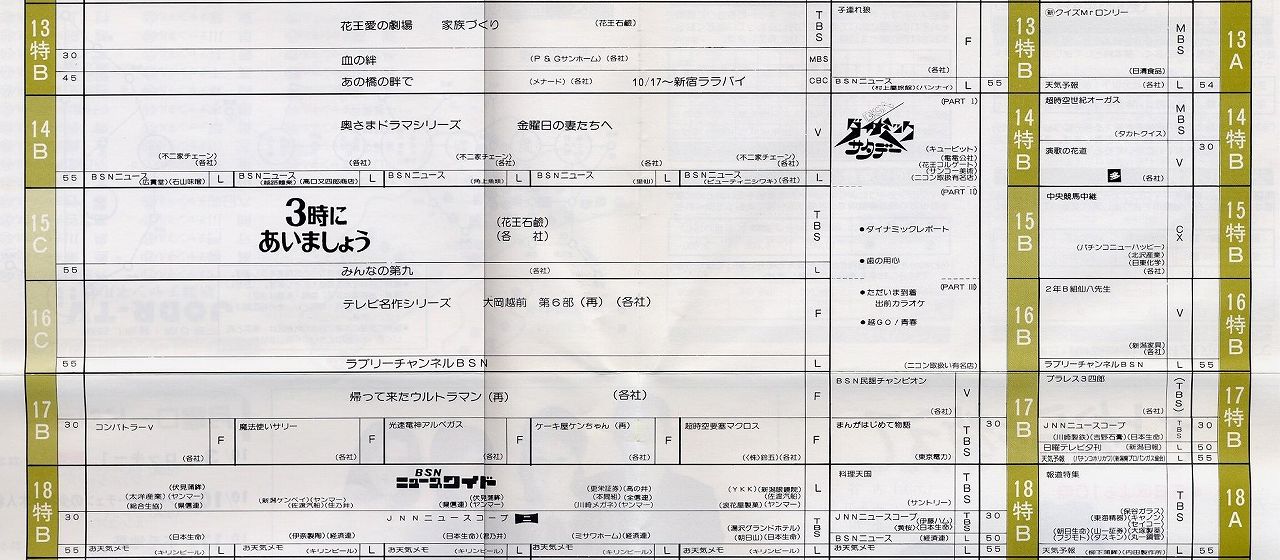 13
特
B
花王愛の劇場 家族づくり
(花王石鹸)
TBS
30
血の絆
(P&Gサンホーム)(各社)
MBS
45
あの橋の畔で
(メナード)(各社)
10/17〜新宿ララバイ
CBC
子連れ狼
(各社)
F
BSNニュース
L
55
13
特
B
新クイズMrロンリー
(日清食品)
MBS
天気予報
(各社)
L
54
13
A
14
B
奥さまドラマシリーズ 金曜日の妻たちへ
(不二家チェーン)
(各社)
(各社)
(不二家チェーン)
(各社)
(各社)
(不二家チェーン)
(各社)
V
55
BSNニュース
(広貫堂)(石山味噌)
L
BSNニュース
(高口又四郎商店)
L
BSNニュース
(角上魚類)
L
BSNニュース
L
BSNニュース
(ビューティニシワキ)(各社)
L
(PART I)
ダイナミック
サタデー
(キューピット)
(電電公社)
(花王コルゲート)
(サンコー美術)
(ニコン取扱有名店)
14
特
B
超時空世紀オーガス
(タカトクイス)
MBS
30
演歌の花道
(各社)
V
14
特
B
15
C
3時に
あいましょう
(花王石鹸)
(各 社)
TBS
55
みんなの第九
(各社)
L
(PART II)
●ダイナミックレポート
●歯の用心
15
B
中央競馬中継
(パチンコニューハッピー)
(北沢産業)
(日東化学)
(各社)
CX
15
特
B
16
C
テレビ名作シリーズ 大岡越前 第6部(再)(各社)
F
55
ラブリーチャンネルBSN
L
(PART III)
●ただいま到着
出前カラオケ
●越GO/青春
(ニコン取扱い有名店)
16
B
2年B組仙八先生
(新潟家具)
(各社)
V
ラブリーチャンネルBSN
L
55
16
特
B
17
B
帰って来たウルトラマン(再)
(各社)
F
30
コンバトラーV
(各社)
F
魔法使いサリー
(各社)
F
光速電神アルベガス
(各社)
F
ケーキ屋ケンちゃん(再)
(各社)
F
超時空要塞マクロス
(㈱鈴五)(各社)
F
BSN民謡チャンピオン
(各社)
V
まんがはじめて物語
(東京電力)
TBS
30
17
B
プラレス3四郎
(各社)
(TBS)
JNNニュースコープ
(川崎製鉄)(吉野石膏)(日本生命)
TBS
30
日曜テレビ夕刊
(新潟日報)
L
50
天気予報
L
55
17
特
B
18
特
B
BSN
ニュースワイド
(伏見蒲鉾)
(太洋産業)(ヤンマー)
(総合生協) (県信連)
(新潟ケンベイ)(ヤンマー)
(佐渡汽船)(住乃井)
(伏見蒲鉾)
(県信連)(ヤンマー)
(更米証券)(高の井)
(本間組)(全信連)
(川崎メガネ)(ヤンマー)
(YKK)(新潟眼鏡院)
(佐渡汽船)
(浪花屋製菓)(ヤンマー)
L
30
JNNニュースコープ
(日本生命)
(伊奈製陶)(経済連)
(日本生命)(君乃井)
(ミサワホーム)(経済連)
(湯沢グランドホテル)
(朝日山)(日本生命)
TBS
55
お天気メモ
(キリンビール)
L
お天気メモ
(キリンビール)
L
お天気メモ
(キリンビール)
L
お天気メモ
(キリンビール)
L
お天気メモ
(キリンビール)
L
料理天国
(サントリー)
TBS
JNNニュースコープ
(伊藤ハム)
(黄桜)(日本生命)
TBS
30
BSNニュース
(経済連)
L
50
お天気メモ
(キリンビール)
L
55
18
特
B
報道特集
(保谷ガラス)
(東海精器)(マツダ)
(セイコー)
(朝日生命)(山一証券)(大塚製薬)
(プラモト)(ダスキン)(丸一鋼管)
TBS
天気予報
L
55
18
A